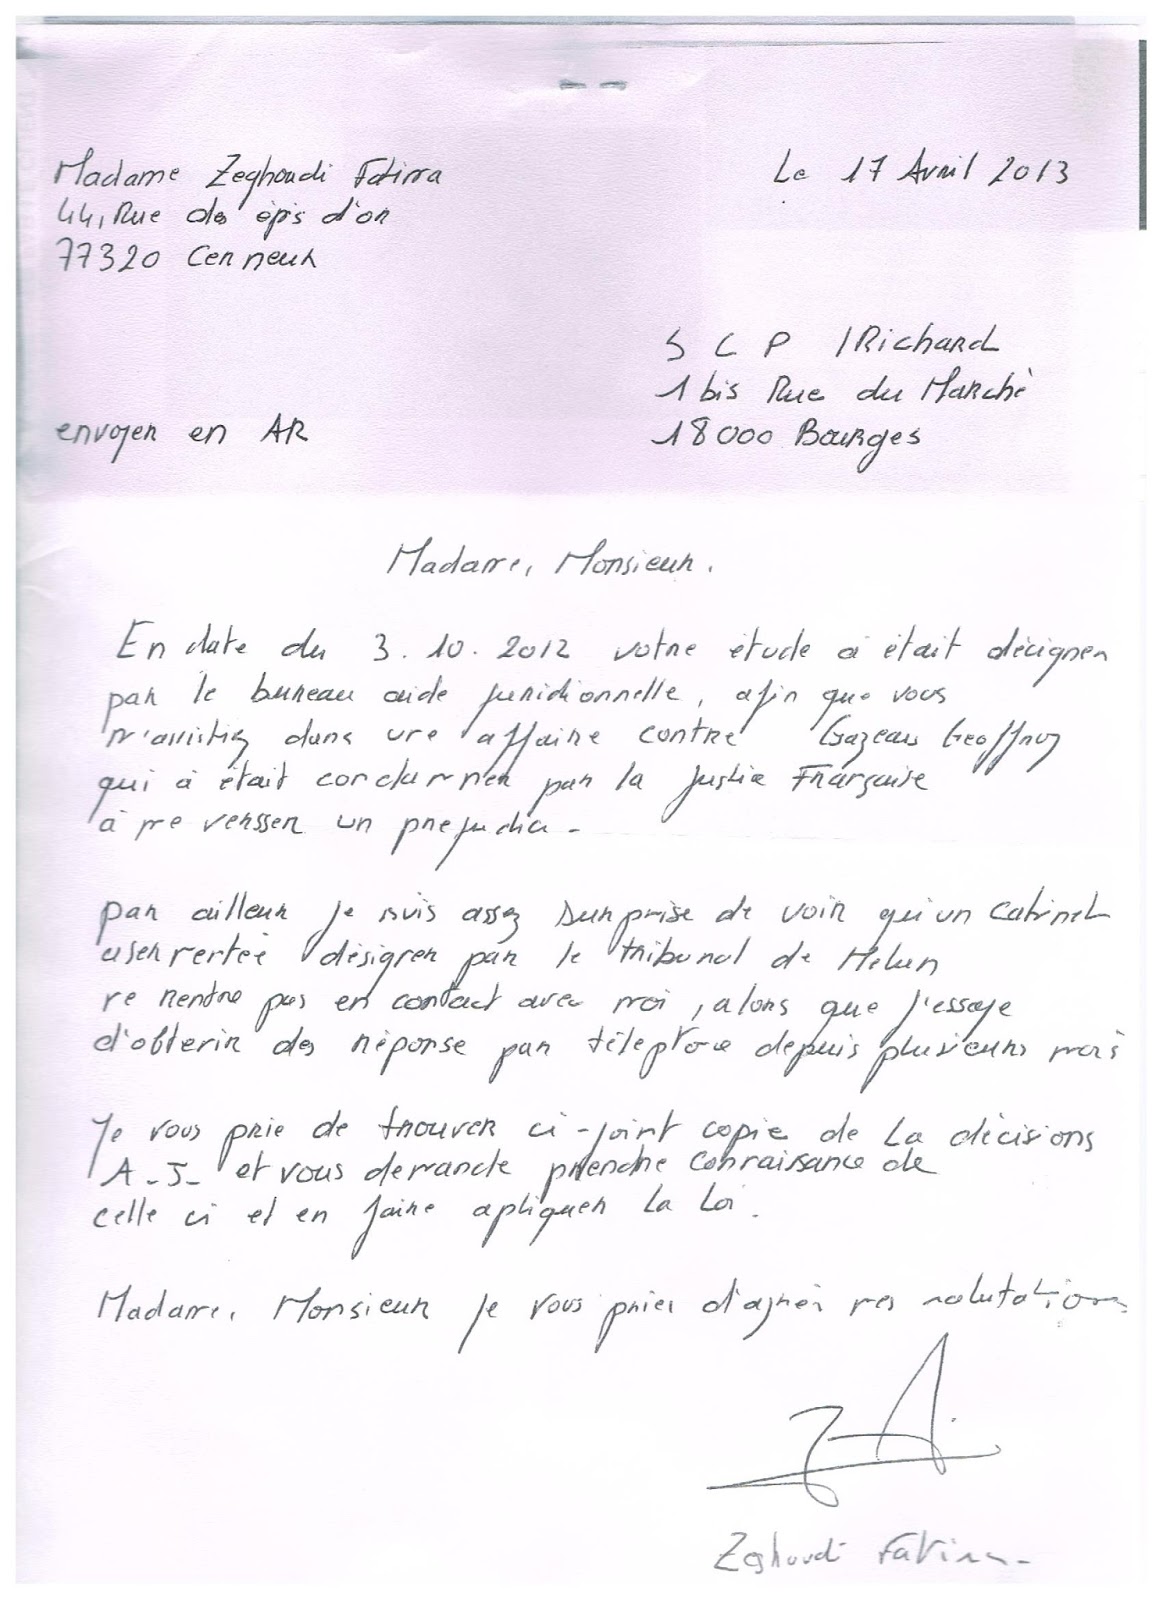 Madame Zeghoudi Fatima
Le 17 Avril 2013
44, Rue des épis d'or
77320 Cerneux
S C P Richard
1 bis Rue du Marché
envoyer en AR
18000 Bourges
Madame, Monsieur.
En date du 3.10.2012 votre étude à était décigner
par le bureau aide juridionnelle, afin que vous
m'assistiez dans une affaire contre Gazeau Geoffroy
qui à était condamner par la Justice Française
à me versser un prejudice -
par ailleur je suis assez surprise de voir qu'un cabinet
asermertée désigner par le tribunal de Melun
ne rentre pas en contact avec moi, alors que j'essaye
d'obtenir des réponse par téléphone depuis plusieurs mois
Je vous prie de trouver ci-joint copie de La décisions
A-J- et vous demande prendre connaissance de
celle ci et en faire apliquer La Loi.
Madame, Monsieur je vous prier d'agréer mes salutations
Zeghoudi Fatima-